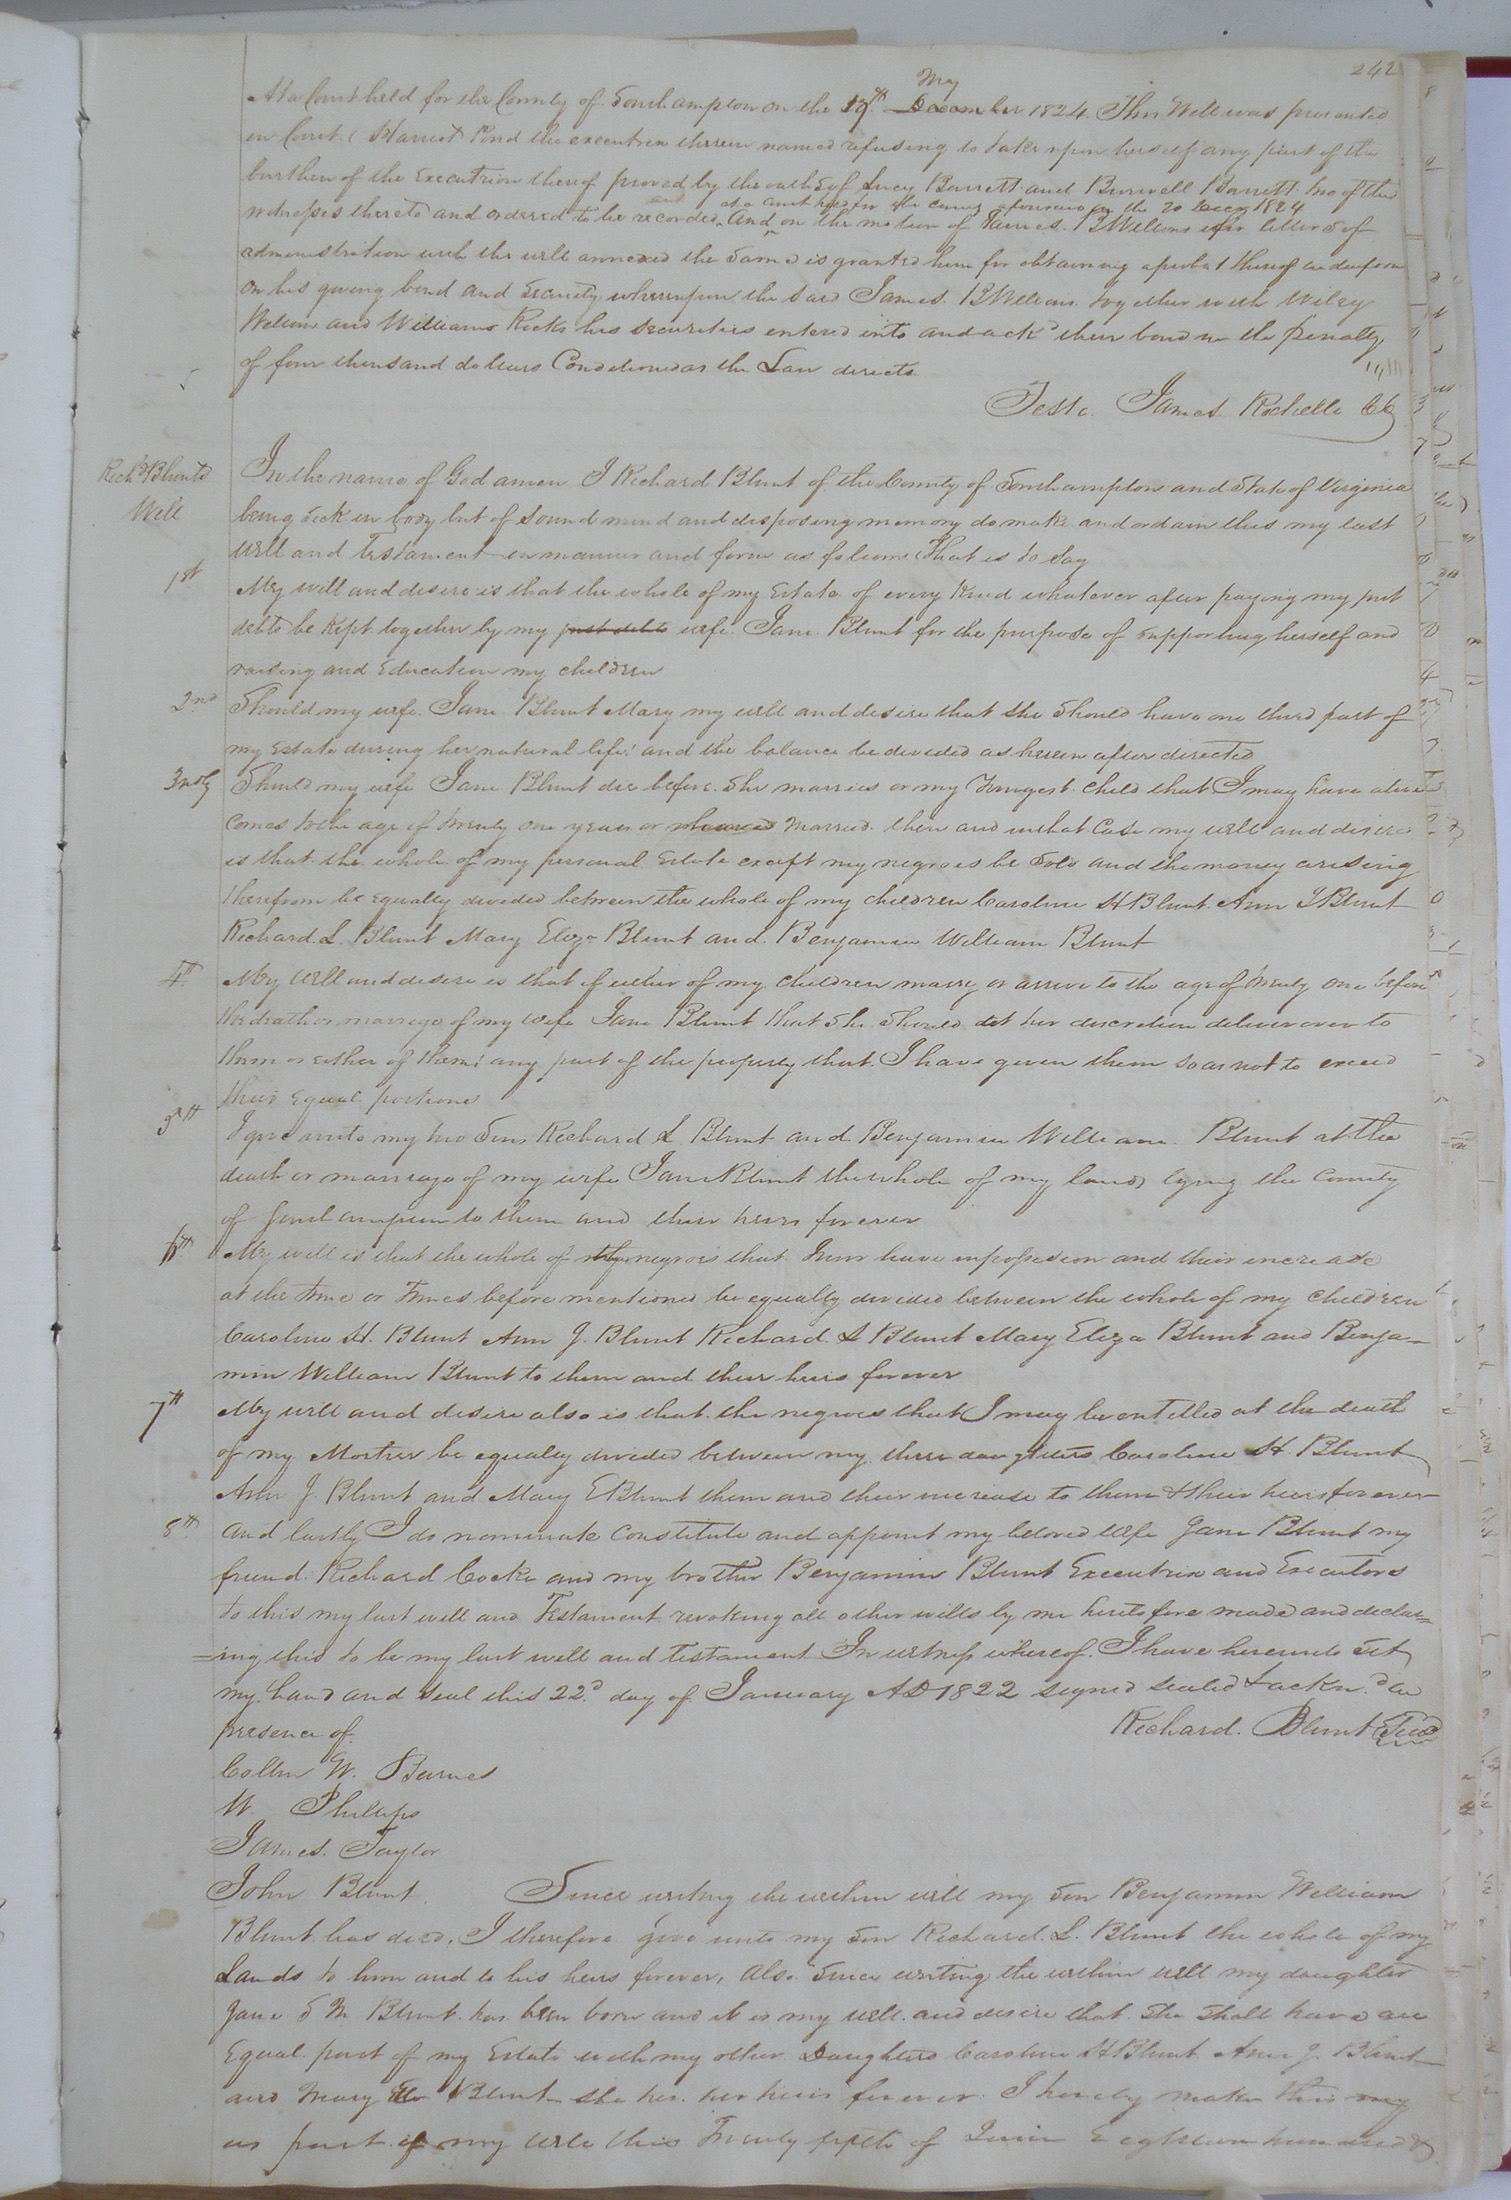 242
At a Court held for the County of Southampton on the 17th May December 1824 This Will was presented
in Court & Harriet Pond the executrix therein named refusing to take upon herself any part of the
burthen of the Execution thereof proved by the oaths of Lucy Barrett and Burwell Barrett two of the
at a Court held for the County aforesaid on the 20 Decr 1824
witnesses thereto and ordered to be recorded And on the motion of James B Williams for letters of
administration with the will annexed the same is granted him for obtaining a probat thereof in due form
on his giving bond and security whereupon the said James B Williams together with Wiley
and Williams Ricks his securities entered into and ackd their bond in the penalty
of four thousand dollars Conditioned as the Law directs
Teste. James Rochelle CC
Richd Blunts
Will
In the name of God amen I Richard Blunt of the County of Southampton and State of Virginia
being sick in body but of sound mind and disposing memory do make and ordain this my last
will and Testament in manner and form as follows That is to say
1st My will and desire is that the whole of my Estate of every Kind whatever after paying my just
debts be kept together by my just debts wife Jane Blunt for the purpose of supporting herself and
raising and Education my children
2nd Should my wife Jane Blunt Marry my will and desire that she should have one third part of
my Estate during her natural life and the balance be divided as herein after directed
3rdly Should my wife Jane Blunt die before she marries or my Youngest child that I may have alive
comes to the age of twenty one years or Married then and in that Case my will and desire
is that the whole of my personal Estate except my negroes be sold and the money arising
therefrom be equally divided between the whole of my children Caroline H Blunt Ann J Blunt
Richard L. Blunt Mary Eliza Blunt and Benjamin William Blunt
4th My will and desire is that if either of my children marry or arrive to the age of twenty one before
the death or marriage of my wife Jane Blunt that she should at her discretion deliver over to
them or either of them any part of the property that I have given them so as not to exceed
their equal portions
5th I give unto my two Sons Richard L Blunt and Benjamin William Blunt at the
death or marriage of my wife Jane Blunt the whole of my lands lying the County
of Southampton to them and their heirs forever
6th My will is that the whole of my negroes that I now have in possession and their increase
at the time or Times before mentioned be equally divided between the whole of my children
Caroline H. Blunt Ann J. Blunt Richard L Blunt Mary Eliza Blunt and Benja-
min William Blunt to them and their heirs forever
7th My will and desire also is that the negroes that I may be entitled at the death
of my Mother be equally divided between my three daughters Caroline H. Blunt
Ann J. Blunt and Mary E Blunt them and their increase to them & their heirs forever
8th And lastly I do nominate constitute and appoint my beloved wife Jane Blunt my
friend Richard Cocke and my brother Benjamin Blunt Executrix and Executors
to this my last will and Testament revoking all other wills by me heretofore made and declar=
=ing this to be my last will and testament In witness whereof I have hereunto set
my hand and seal this 22d day of January AD 1822 signed sealed & ackn.d in
presence of Richard. Blunt Seal
Collin W. Barnes
W. Phillips
James. Taylor
John Blunt. Since writing the within will my son Benjamin William
Blunt has died, I therefore give unto my son Richard. L. Blunt the whole of my
Lands to him and to his heirs forever, also Since writing the within will my daughter
Jane S M Blunt has been born and it is my will and desire that she shall have an
Equal part of my Estate with my other Daughters Caroline H Blunt Ann J Blunt
and Mary Blunt her heirs forever. I hereby make this
as part of my will this Twenty fifth of June Eighteen hundred &